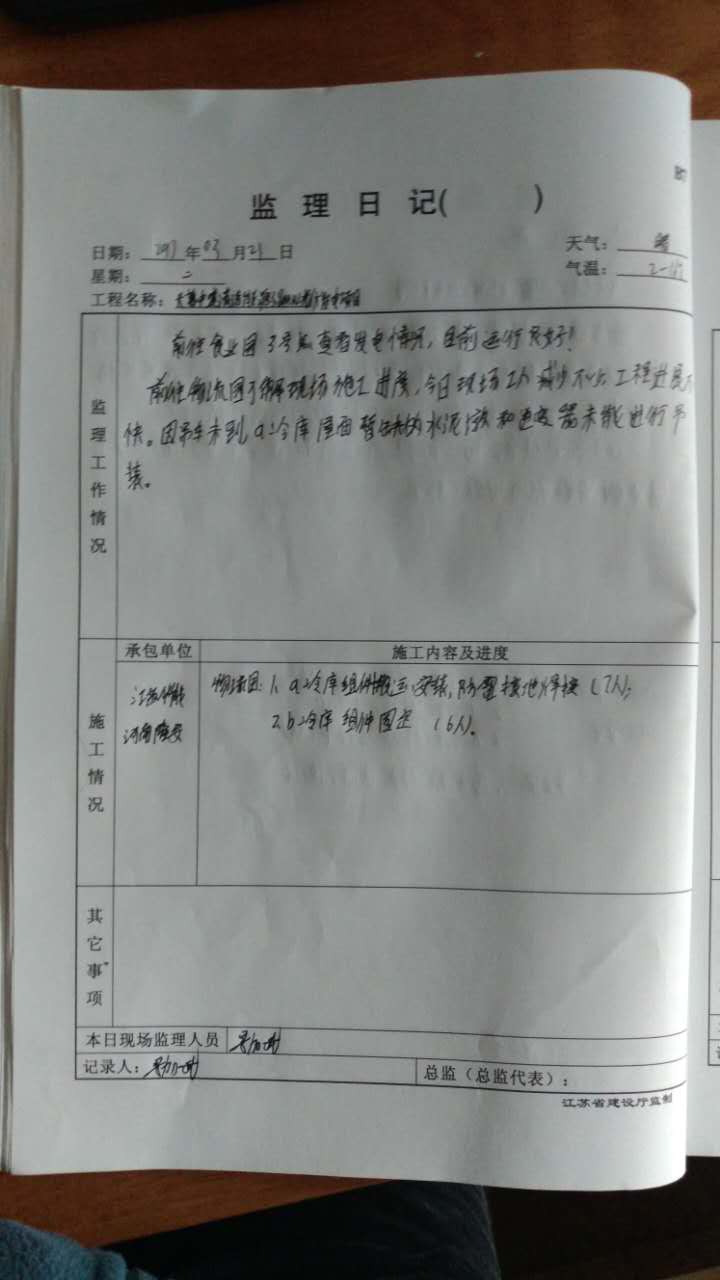 监理日记( )
日期: 2017年03月21日
天气: 晴
星期: 二
气温:
工程名称:
监理工作情况
前往食业园3号点查看发电情况，目前运行良好!
前往物流园了解现场施工进度，今日现场工人减少不少，工程进展不
快。因吊车未到，a2冷库屋面暂缺的水泥墩和逆变器未能进行吊
装。
承包单位 施工内容及进度
施工情况
物流园: 1、a2冷库组件搬运、安装，防雷接地焊接(7人);
2、b2冷库组件固定 (6人)。
其它事项
本日现场监理人员
记录人:
总监（总监代表）:
江苏省建设厅监制